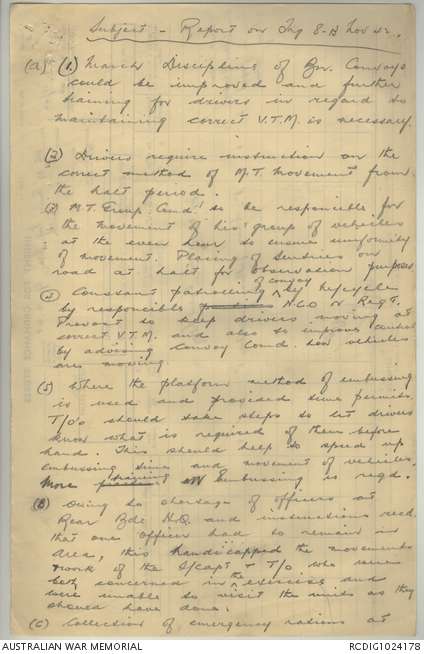 Subject :- Report on Trg 8-13 Nov 42.
(a) (1) March Discipline of Bn. Convoys
could be improved and further
training for drivers in regard to
maintaining correct V.T.M. is necessary.
(2) Drivers require instruction on the
correct method of M.T. movement from
the halt period.
(3) M.T. Group Comd to be responsible for
the movement of his group of vehicles
at the even hour to ensure uniformity
of movement. Placing of sentries on
road at halt for observation purposes
(4) Constant patrolling of convoy by M/cycle
by responsible N.C.O or Regt.
Provost to keep drivers moving at
correct V.T.M. and also to improve control
by advising Convoy Comd. how vehicles
are moving.
(5) Where the platform method of embussing
is used and provided time permits
T/O's should take steps to let drivers
know what is required of them before
hand. This should help to speed up
embussing time and movement of vehicles.
More training in embussing is reqd.
(B) Owing to shortage of officers at
Rear Bde H.Q. and instructions recd
that one officer had to remain in
area, this handicapped the movements
& work of the S/Capt & T/O who were
both concerned in the exercise and
were unable to visit the units as they
should have done.
(C) Collection of emergency rations at
AUSTRALIAN WAR MEMORIAL
RCDIG1024178